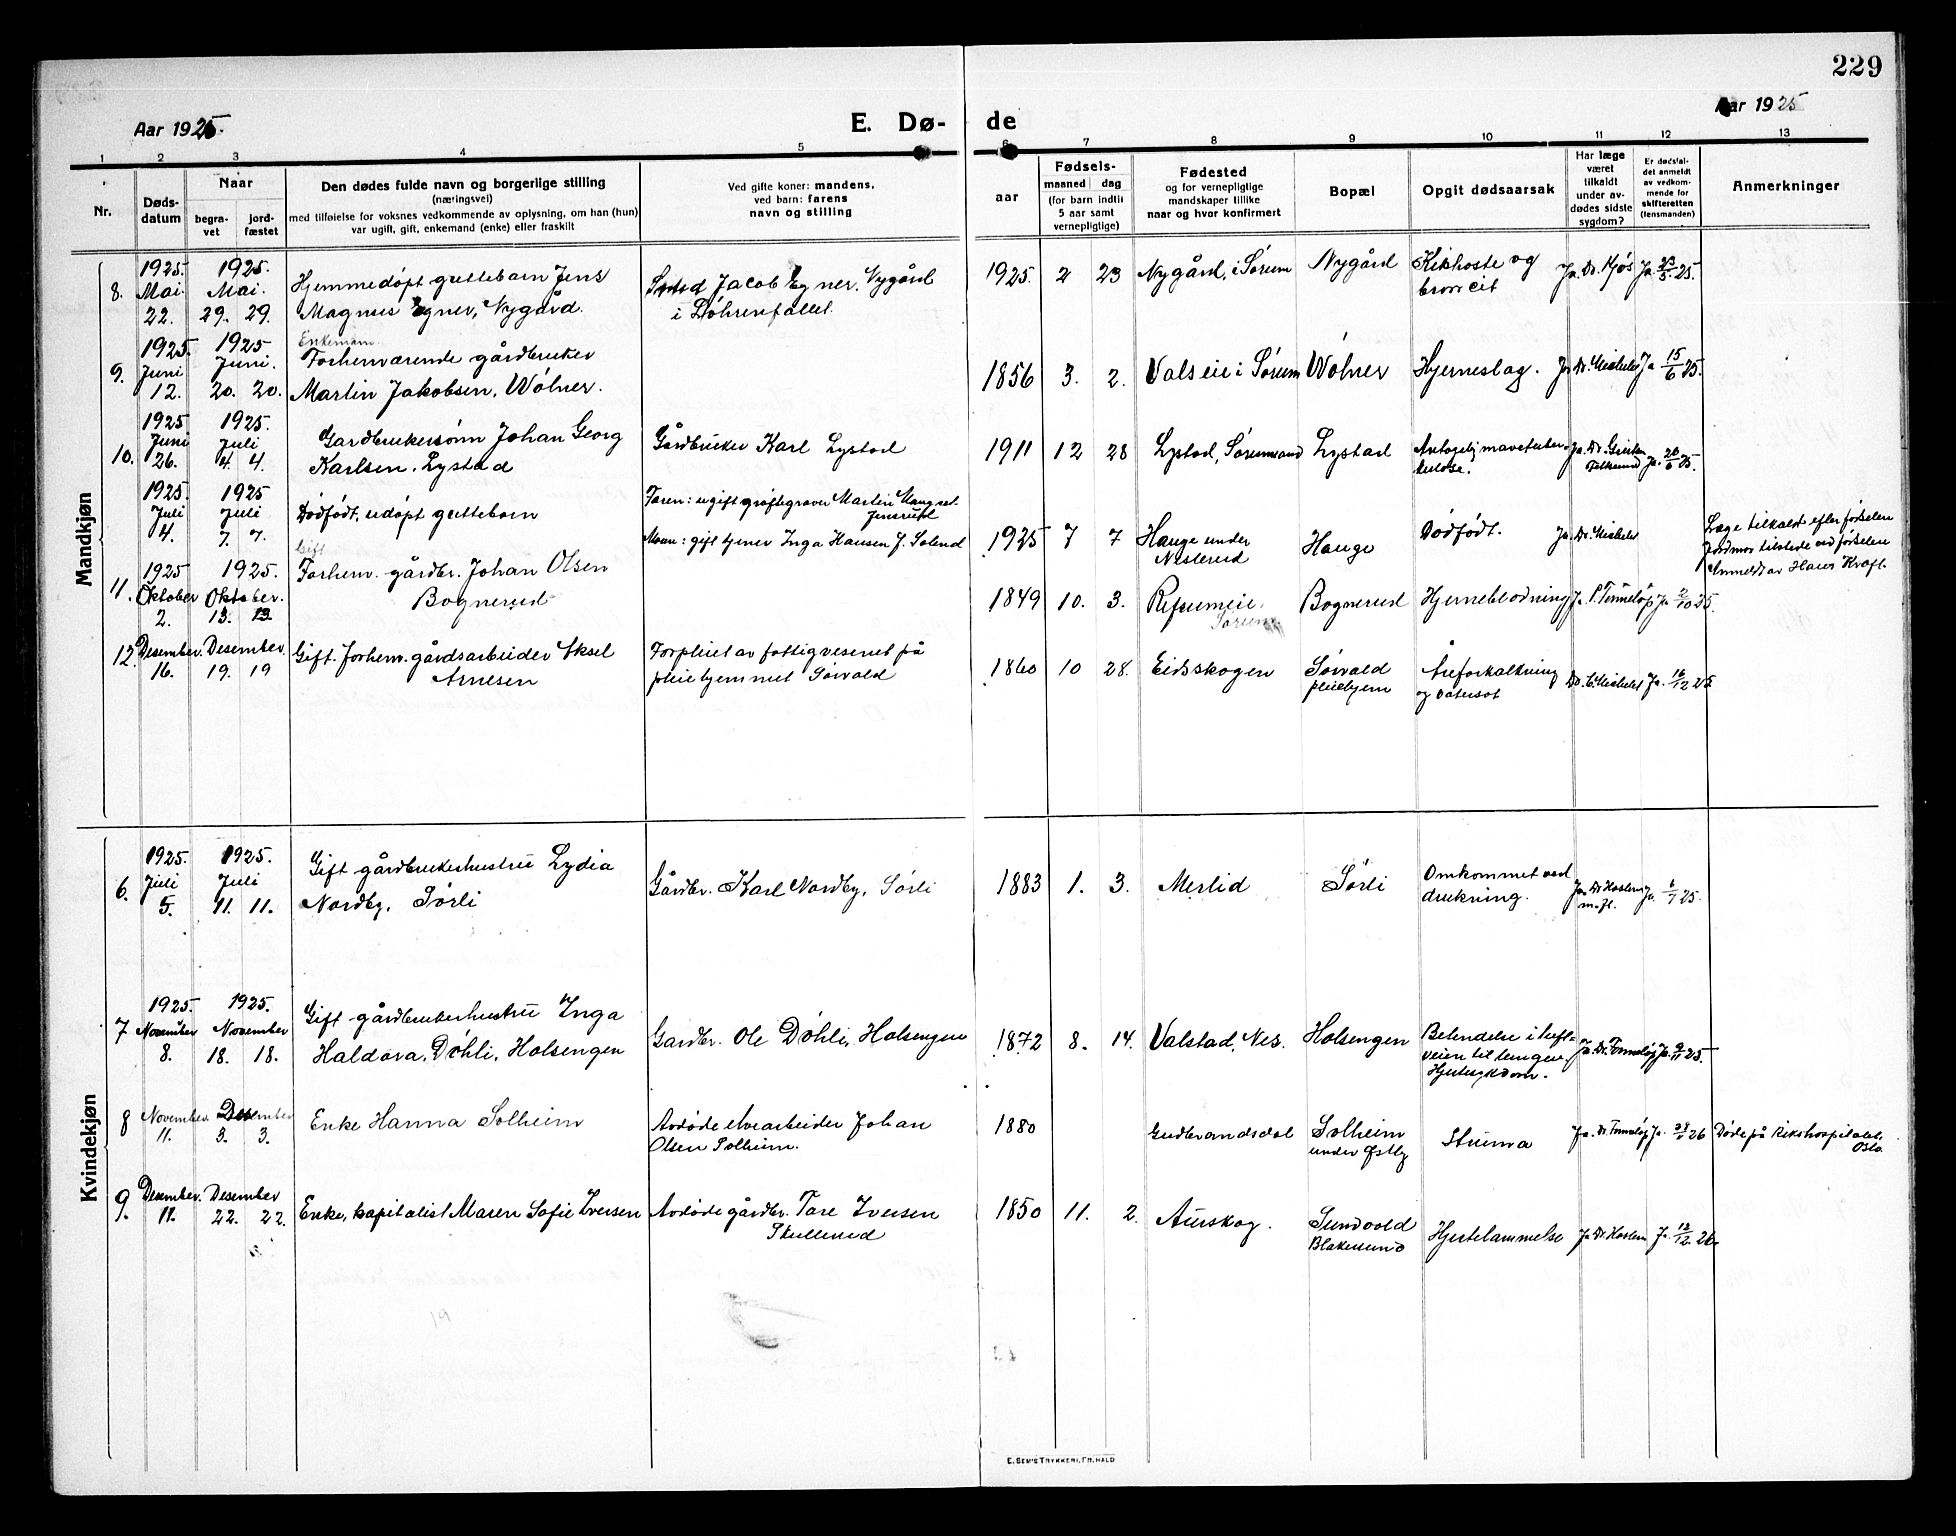 229
Aar 1925.
E. Dø-
de
Aar 1925
1 2 3 4 5 6 7 8 9 10 11 12 13
Nr.
Døds-
datum
Naar
begra-
vet
jord-
fæstet
Den dødes fulde navn og borgerlige stilling
(næringsvei)
med tilføielse for voksnes vedkommende av oplysning, om han (hun)
var ugift, gift, enkemand (enke) eller fraskilt
Ved gifte koner: mandens,
ved barn: farens
navn og stilling
Fødsels-
aar
maaned dag
(for barn indtil
5 aar samt
vernepligtige)
Fødested
og for vernepligtige
mandskaper tillike
naar og hvor konfirmert
Bopæl
Opgit dødsaarsak
Har læge
været
tilkaldt
under av-
dødes sidste
sygdom?
Er dødsfal-
det anmeldt
av vedkom-
mende for
skifteretten
(lensmanden)
Anmerkninger
Mandkjøn
8.
1925.
Mai
22.
1925.
Mai.
29. 29.
Hjemmedøpt guttebarn Jens
Magnus Egner, Nygård.
Jacob Egner, Nygård
i
1925. 2 23
Nygård, i Sørum
Nygård
Kikhoste og
Ja. Dr. Kjös
Ja 23/5 25.
9.
1925.
Juni
12.
1925
Juni.
20. 20.
Enkemann
Forhenværende gårdbruker
Martin Jakobsen, Wölner.
1856 3. 2.
Valseie i Sørum
Wölner
Hjerneslag.
Ja Dr. Michelet
Ja 15/6 25.
10.
1925
Juni
26.
1925.
Juli
4. 4.
Gardbrukersønn Johan Georg
Karlsen, Lystad
Gårdbruker Karl Lystad
1911 12 28
Lystad, Sørumsand
Lystad
mavetuber-
kulose.
Ja. Dr.
Ja. 26/6 25.
1925.
Juli
4.
1925
Juli
7. 7.
Dödfödt, udöpt guttebarn
Faren: ugift grøftegraver Martin
Jensrud
Moren: gift tjener Inga Hansen
1925 7 7
Hauge under
Nesterud
Hauge
Dödfödt.
Ja. Dr. Michelet
Læge tilkaldt efter fødselen
Jordmor tilstede ved fødselen
Anmeldt av Hans Kraft.
11.
1925
Oktober
2.
1925.
Oktober.
13. 13
Gift
Forhenv. gårdbr. Johan Olsen
Bognerud
1849 10. 3.
Refsumeie,
Sørum
Bognerud
Hjerneblødning
Ja. Tonneløp
Ja 2/10 25.
12.
Desember.
16.
Desember.
19. 19
Gift. Forhenv. gårdsarbeider Aksel
Arnesen
Forpleiet av fattigvesenet på
pleiehjemmet Sörvald
1860 10 28.
Eidsskogen
Sörvald
pleiehjem
Åreforkalkning
og vatersot
Dr. C. Michelet
Ja. 16/12 25
Kvindekjøn
6.
1925.
Juli
5.
1925.
Juli
11. 11.
Gift gårdbrukerhustru Lydia
Nordby, Sørli
Gårdbr. Karl Nordby, Sørli
1883 1. 3.
Merlid
Sörli
Omkommet ved
drukning.
Ja. Dr. Koslem
m. fl.
Ja. 6/7 25.
7
1925.
November
8.
1925.
November
18. 18.
Gift gårdbrukerhustru Inga
Haldora, Döhli, Holsengen
Gardbr. Ole Döhli, Holsengen
1872 8. 14.
Valstad, Nes.
Holsengen
Betendelse i luft-
veien til lungen.
Hjertesykdom.
Ja. Dr. Tonneløp
Ja. 9/11 25.
8
November.
11.
Desember
3. 3.
Enke Hanna Solheim
Avdøde elvearbeider Johan
Olsen Solheim.
1880
Gudbrandsdal
Solheim
under Østby
Struma
Ja. Dr. Tonneløp
26
Døde på Rikshospitalet,
Oslo.
9.
Desember.
11.
Desember
22. 22.
Enke, kapitalist Maren Sofie Iversen
Avdøde gårdbr. Tore Iversen
Skullerud
1850 11. 2.
Aurskog.
Sundvold
Blakersund
Hjertelammelse
Ja Dr. Koslem
Ja. 12/12. 26.
19
E. SEM'S TRYKKERI, FR.HALD